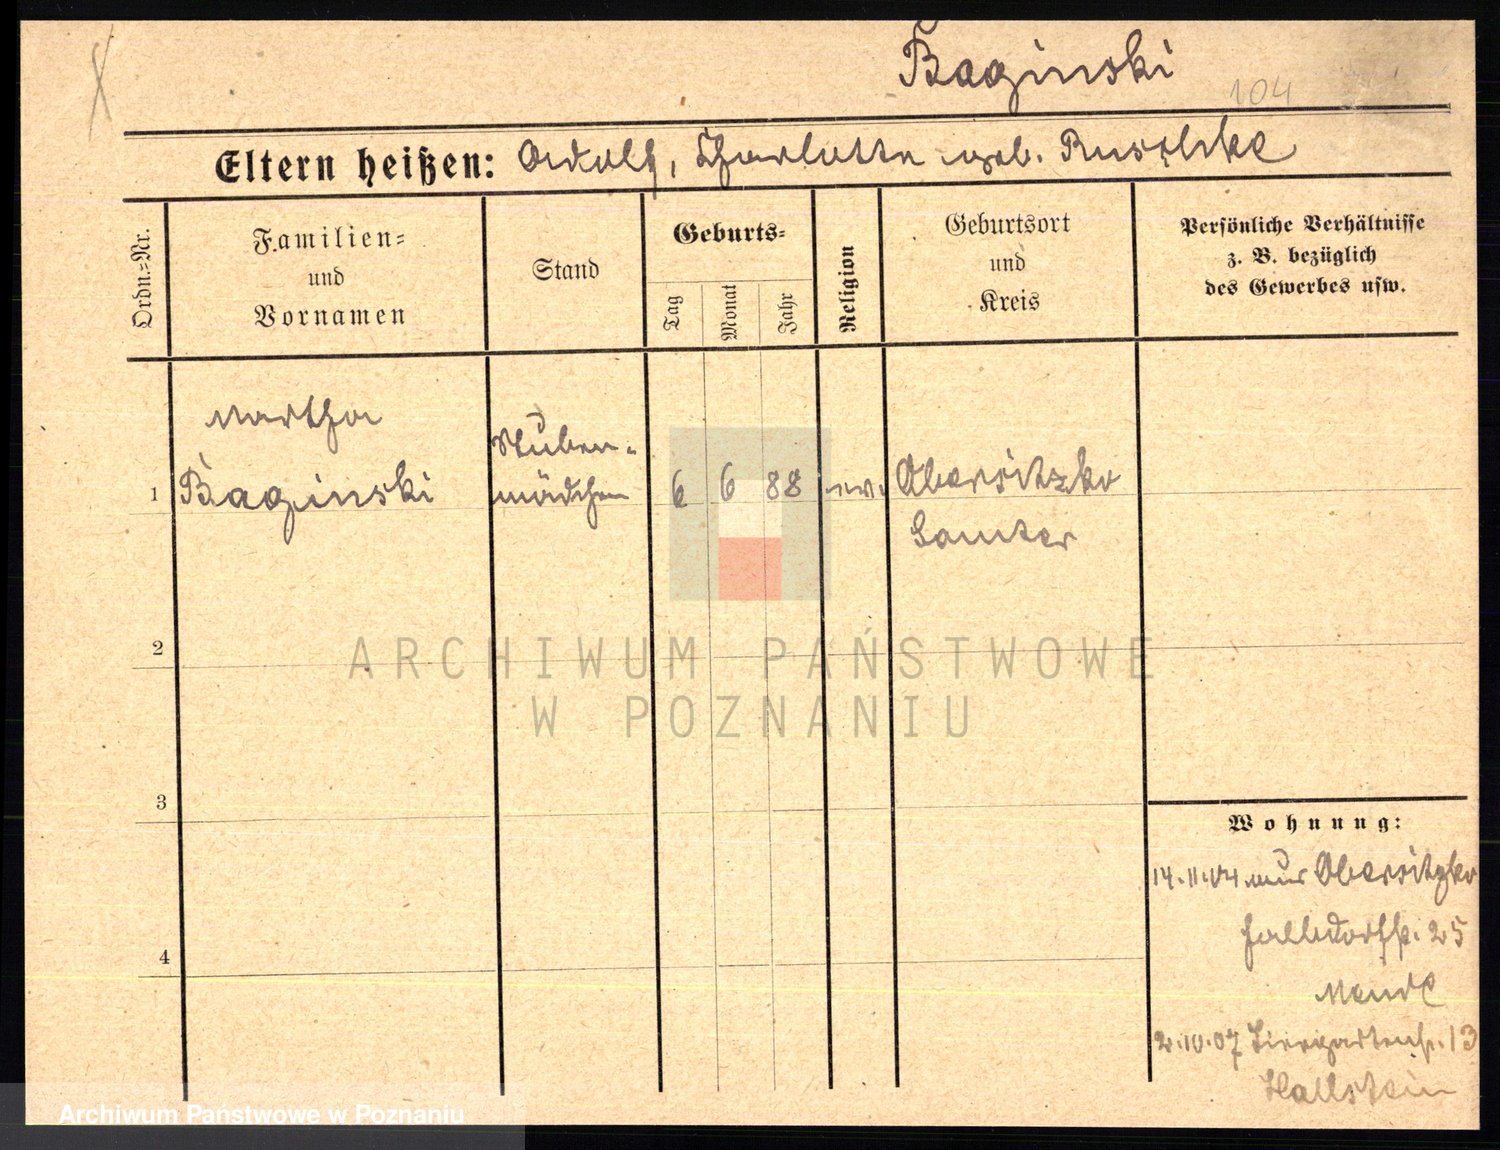 Baginski
104
Eltern heißen: Adolf, Charlotte geb. Ruschke
Ordn.=Nr.
Familien=
und
Vornamen
Stand
Geburts=
Tag
Monat
Jahr
Religion
Geburtsort
und
Kreis
Persönliche Verhältnisse
z. B. bezüglich
des Gewerbes usw.
Martha
1 Baginski
Stuben-
mädchen
6 6 88 ev. Obersitzko
Samter
2
ARCHIWUM PAŃSTWOWE
W POZNANIU
3
4
Wohnung:
14.11.04 aus Obersitzko
25
2.10.07 Tiergartenstr. 13
Hallstein
Archiwum Państwowe w Poznaniu